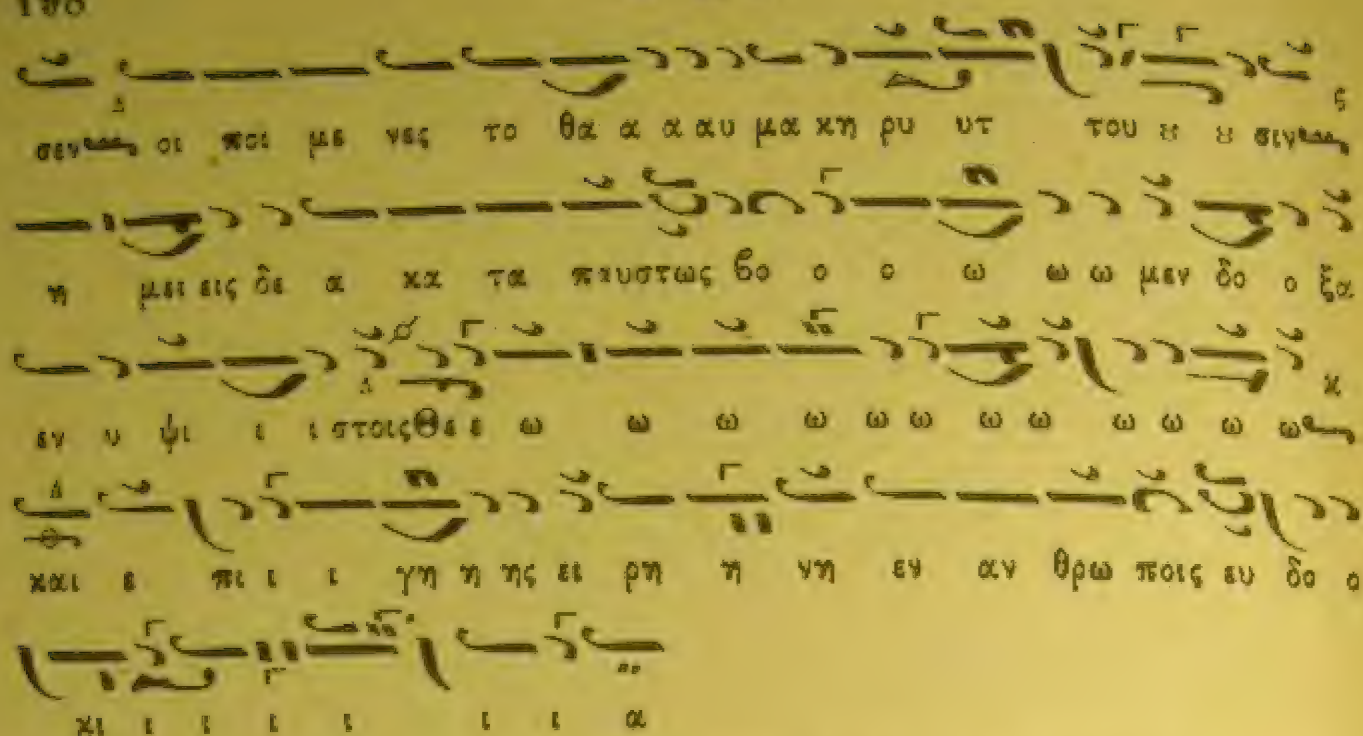 σεν οι ποι με νες το θα α α αυ μα κη ρυ υτ του ȣ ȣ σιν
η μει εις δε α κα τα παυστως βο ο ο ω ω ω μεν δο ο ξα
εν υ ψι ι ι στοις Θε ε ω ω ω ω ω ω ω ω ω ω ω ω
και ε πι ι ι γη η ης ει ρη η νη εν αν θρω ποις ευ δο ο
κι ι ι ι ι ι ι α